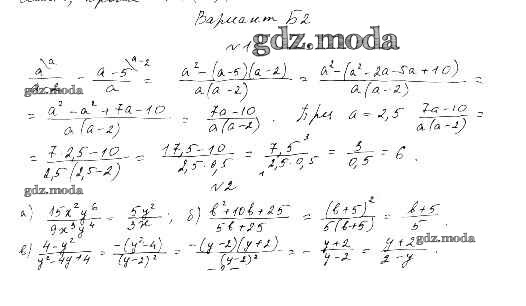 Вариант Б2
№1
gdz.moda
a/(a-2) - (a-5)/a = (a²-(a-5)(a-2))/(a(a-2)) = (a²-(a²-2a-5a+10))/(a(a-2)) =
gdz.moda
= (a²-a²+7a-10)/(a(a-2)) = (7a-10)/(a(a-2)). При a = 2,5 (7a-10)/(a(a-2)) =
= (7·2,5-10)/(2,5(2,5-2)) = (17,5-10)/(2,5·0,5) = (7,5)/(2,5·0,5) = 3/0,5 = 6.
gdz.moda
№2
а) (15x²y⁶)/(9x³y⁴) = (5y²)/(3x); б) (b²+10b+25)/(5b+25) = (b+5)²/(5(b+5)) = (b+5)/5.
в) (4-y²)/(y²-4y+4) = (-(y²-4))/((y-2)²) = (-(y-2)(y+2))/((y-2)²) = -(y+2)/(y-2) = (y+2)/(2-y).
gdz.moda